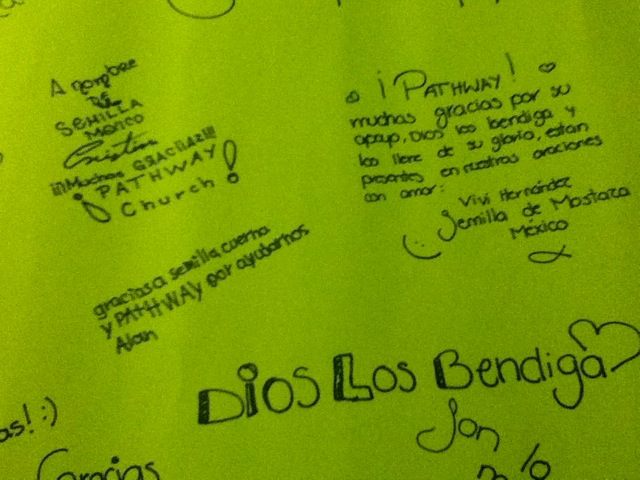 A nombre
DE
SEMILLA
MÉXICO
Cristina
¡¡¡Muchas GRACIAS!!!
¡PATHWAY
Church!
¡PATHWAY!
muchas gracias por su
apoyo, Dios los bendiga y
los llene de su gloria, estan
presentes en nuestras oraciones
con amor:
Vivi Hernández
Semilla de Mostaza
México
gracias a semilla cuerna
y PATHWAY por ayudarnos
Alan
Dios Los Bendiga
Jon
as! :)
Gracias